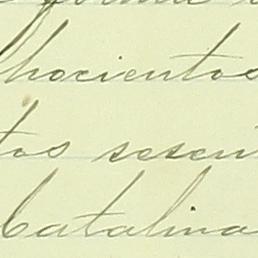 hocientos
tos sesen
Catalina